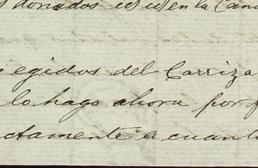 donados en la Can
egidos del Carriza
lo hago ahora por
ctamente a cuanto